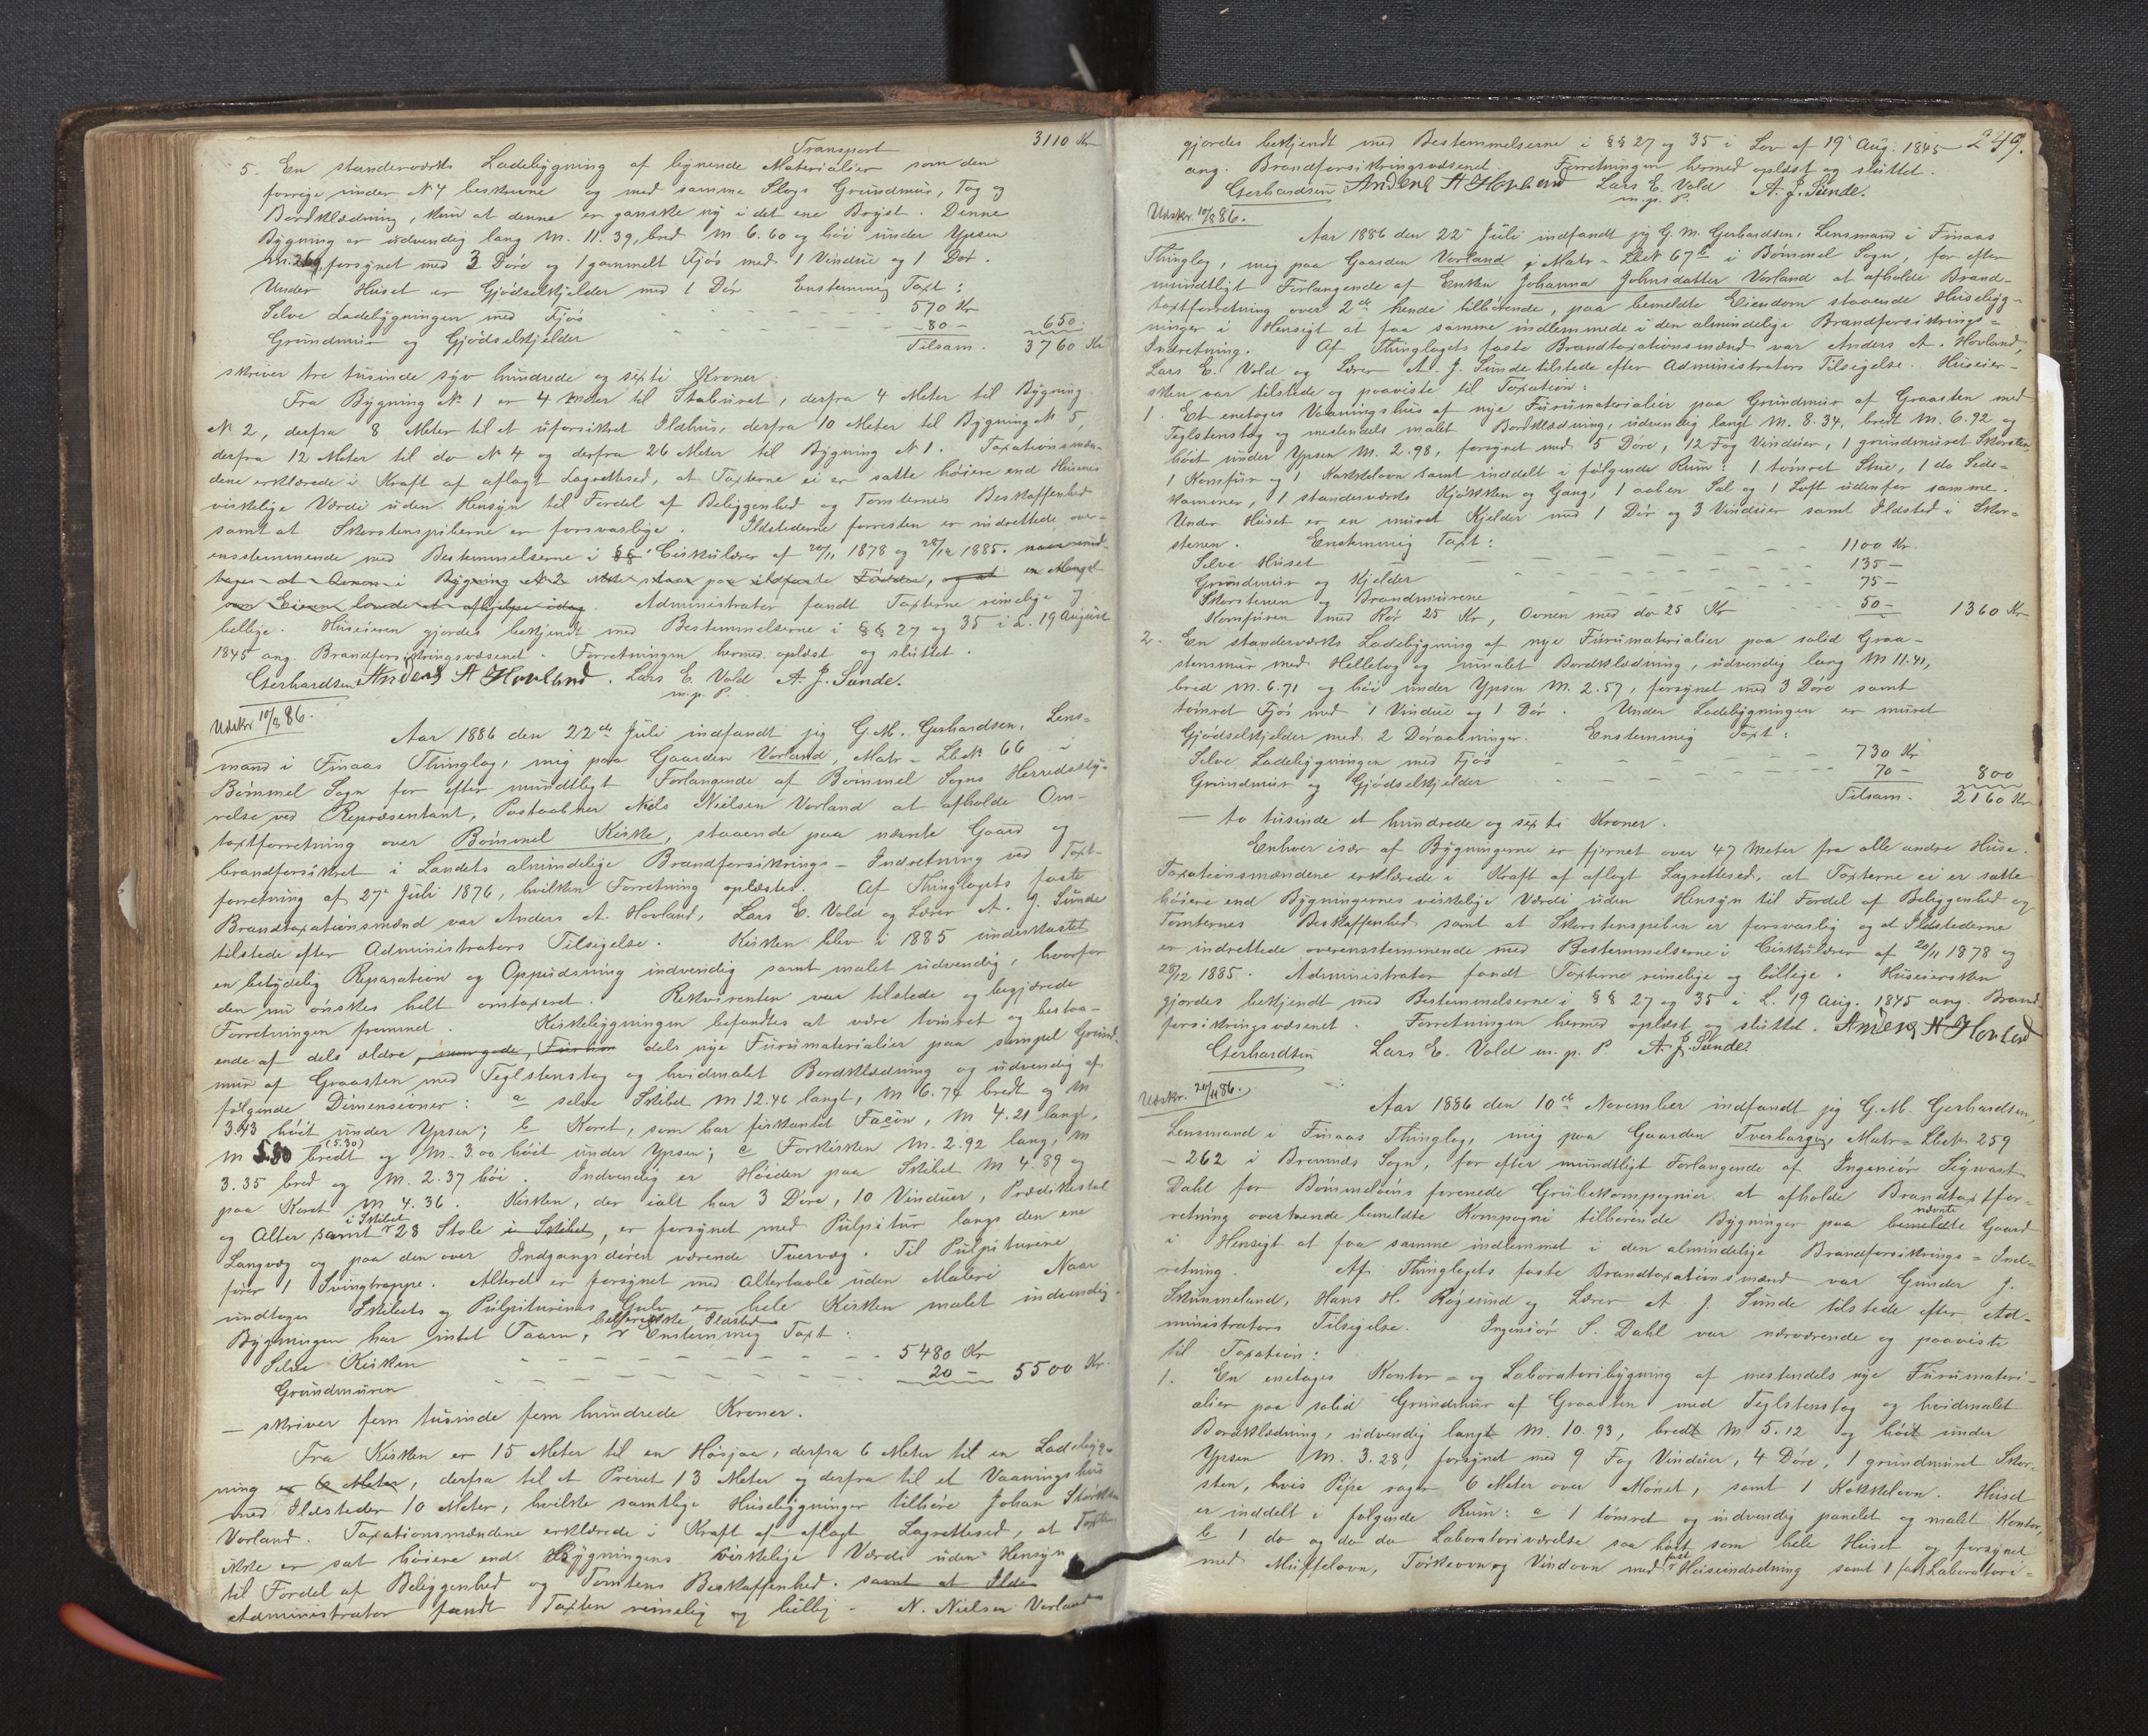 Transport 3110 Kr
5. En standerværks Ladebygning af lignende Materialier som den
forrige under № 4 beskrevne og med samme Slags Grundmur, Tag og
Bordklædning, kun at denne er ganske ny i det ene Bryst. Denne
Bygning er udvendig lang M. 11.39, bred M 6.60 og høi under Ypsen
M. 2.69, forsynet med 3 Døre og 1 gammelt Fjøs med 1 Vindue og 1 Dør.
Under Huset er Gjødselkjelder med 1 Dør Enstemmig Taxt:
Selve Ladebygningen med Fjøs - - - - 570 Kr
Grundmur og Gjødselkjelder - - - - 80 - 650
Tilsam. 3760 Kr
skriver tre tusinde syv hundrede og sexti Kroner.
Fra Bygning № 1 er 4 Meter til Staburet, derfra 4 Meter til Bygning
№ 2, derfra 8 Meter til et uforsikret Ildhus, derfra 10 Meter til Bygning № 5,
derfra 12 Meter til do № 4 og derfra 26 Meter til Bygning № 1. Taxationsmæn-
dene erklærede i Kraft af aflagt Lagrettesed, at Taxterne ei er satte høiere end Husenes
virkelige Værdi uden Hensyn til Fordel af Beliggenhed og Tomternes Beskaffenhed
samt at Skorstenspiberne er forsvarlige. Ildstederne forresten er indrettede over-
ensstemmende med Bestemmelserne i §§ Cirkulærer af 20/11 1878 og 28/12 1885. naar und-
tages at Ovnen i Bygning № 2 ikke staar paa ildfaste Fødder, og at en Mangel
som Eieren lovede at afhjelpe idag. Administrator fandt Taxterne rimelige og
billige. Huseieren gjordes bekjendt med Bestemmelserne i §§ 27 og 35 i L. 19 August
1845 ang. Brandforsikringsvæsenet. Forretningen hermed oplæst og sluttet.
Gerhardsen Anders A Hovland. Lars E. Vold A. J. Sunde.
m. p. P.
Udskr. 10/8 86.
Aar 1886 den 22de Juli indfandt jeg G. M. Gerhardsen, Lens=
mand i Finaas Thinglag, mig paa Gaarden Vorland, Matr-Løbe№ 66 i
Bømmel Sogn for efter mundtligt Forlangende af Bømmel Sogns Herredssty-
relse ved Repræsentant, Postaabner Niels Nielsen Vorland at afholde Om-
taxtforretning over Bømmel Kirke, staaende paa nævnte Gaard og
brandforsikret i Landets almindelige Brandforsikrings-Indretning ved Taxt-
forretning af 27de Juli 1876, hvilken Forretning oplæstes. Af Thinglagets faste
Brandtaxationsmænd var Anders A. Hovland, Lars E. Vold og Lærer A. J. Sunde
tilstede efter Administrators Tilsigelse. Kirken blev i 1885 underkastet
en betydelig Reparation og Oppudsning indvendig samt malet udvendig, hvorfor
den nu ønskes helt omtaxeret. Rekvirenten var tilstede og begjærede
Forretningen fremmet. Kirkebygningen befandtes at være tømret og bestaa-
ende af dels ældre, dels nye Furumaterialier paa simpel Grund-
mur af Graasten med Teglstenstag og hvidmalet Bordklædning og udvendig af
følgende Dimensioner: a selve Skibet M 12.46 langt, M 6.74 bredt og M
3.43 høit under Ypsen; b Koret, som har firkantet Facon, M 4.21 langt,
M 5.30 (5.30) bredt og M. 3.00 høit under Ypsen; c Forkirken M. 2.92 lang, M
3.35 bred og M. 2.37 høi. Indvendig er Høiden paa Skibet M 4.89 og
paa Koret M 4.36. Kirken, der ialt har 3 Døre, 10 Vinduer, Prædikestol
og Alter samt i Skibet 28 Stole i Skibet, er forsynet med Pulpitur langs den ene
Langvæg og paa den over Indgangsdøren værende Tvervæg. Til Pulpiturene
fører 1 Svingtrappe. Alteret er forsynet med Altertavle uden Maleri Naar
undtages Skibets og Pulpiturenes Gulv er hele Kirken malet indvendig.
Bygningen har intet Taarn, heller ikke Ildsted Enstemmig Taxt:
Selve Kirken - - - - 5480 Kr
Grundmuren - - - - 20 - 5500 Kr.
— skriver fem tusinde fem hundrede Kroner.
Fra Kirken er 15 Meter til en Høsjaa, derfra 6 Meter til en Ladebyg-
ning er 6 Meter, derfra til et Privet 13 Meter og derfra til et Vaaningshus
med Ildsteder 10 Meter, hvilke samtlige Husebygninger tilhøre Johan
Vorland. Taxationsmændene erklærede i Kraft af aflagt Lagrettesed, at Taxten
ikke er sat høiere end Bygningens virkelige Værdi uden Hensyn
til Fordel af Beliggenhed og Tomtens Beskaffenhed. samt at Ilde
Administrator fandt Taxten rimelig og billig - N. Nielsen Vorland
249.
gjordes bekjendt med Bestemmelserne i §§ 27 og 35 i Lov af 19 Aug. 1845
ang. Brandforsikringsvæsenet. Forretningen hermed oplæst og sluttet.
Gerhardsen Anders A Hovland Lars E. Vold A. J. Sunde.
m. p. P.
Udskr. 10/8 86.
Aar 1886 den 22de Juli indfandt jeg G. M. Gerhardsen, Lensmand i Finaas
Thinglag, mig paa Gaarden Vorland, Matr-Løbe№ 67b i Bømmel Sogn, for efter
mundtligt Forlangende af Enken Johanna Johnsdatter Vorland at afholde Brand-
taxtforretning over 2de hende tilhørende, paa bemeldte Eiendom staaende Husebyg-
ninger i Hensigt at faa samme indlemmede i den almindelige Brandforsikrings=
Indretning. Af Thinglagets faste Brandtaxationsmænd var Anders A. Hovland,
Lars E. Vold og Lærer A. J. Sunde tilstede efter Administrators Tilsigelse. Huseier-
sken var tilstede og paaviste til Taxation:
1. Et enetages Vaaningshus af nye Furumaterialier paa Grundmur af Graasten med
Teglstenstag og mestendels malet Bordklædning, udvendig langt M. 8.34, bredt M. 6.92 og
høit under Ypsen M. 2.98, forsynet med 5 Døre, 12 Fag Vinduer, 1 grundmuret Skorsten,
1 Komfur og 1 Kakkelovn samt inddelt i følgende Rum: 1 tømret Stue, 1 do Side=
kammer, 1 standerværks Kjøkken og Gang, 1 aaben Sal og 1 Loft udenfor samme.
Under Huset er en muret Kjelder med 1 Dør og 3 Vinduer samt Ildsted i Skor=
stenen. Enstemmig Taxt:
Selve Huset - - - - 1100 Kr.
Grundmur og Kjelder - - - - 135 -
Skorstenen og Brandmurene - - - - 75 -
Komfuren med Rør 25 Kr, Ovnen med do 25 Kr - - 50 - 1360 Kr
2. En standerværks Ladebygning af nye Furumaterialier paa solid Graa-
stensmur med Helletag og umalet Bordklædning, udvendig lang M 11.41,
bred M. 6.71 og høi under Ypsen M. 2.57, forsynet med 3 Døre samt
tømret Fjøs med 1 Vindue og 1 Dør. Under Ladebygningen er muret
Gjødselkjelder med 2 Døraabninger. Enstemmig Taxt:
Selve Ladebygningen med Fjøs - - - - 730 Kr
Grundmur og Gjødselkjelder - - - - 70 - 800
Tilsam. 2160 Kr
— to tusinde et hundrede og sexti Kroner.
Enhver især af Bygningerne er fjernet over 47 Meter fra alle andre Huse.
Taxationsmændene erklærede i Kraft af aflagt Lagrettesed, at Taxterne ei er satte
høiere end Bygningernes virkelige Værdi uden Hensyn til Fordel af Beliggenhed og
Tomternes Beskaffenhed samt at Skorstenspiben er forsvarlig og at Ildstederne
er indrettede overensstemmende med Bestemmelserne i Cirkulærer af 20/11 1878 og
28/12 1885. Administrator fandt Taxterne rimelige og billige. Huseiersken
gjordes bekjendt med Bestemmelserne i §§ 27 og 35 i L. 19 Aug. 1845 ang. Brand-
forsikringsvæsenet. Forretningen hermed oplæst og sluttet. Anders A Hovland
Gerhardsen Lars E. Vold m. p. P A. J. Sunde.
Udskr. 20/11 86.
Aar 1886 den 10de November indfandt jeg G. M. Gerhardsen,
Lensmand i Finaas Thinglag, mig paa Gaarden Tverborgvig, Matr-Løbe№ 259
- 262 i Bremnæs Sogn, for efter mundtligt Forlangende af Ingeniør Sigwart
Dahl for Bømmeløens forenede Grubekompagnier at afholde Brandtaxtfor-
retning over hende bemeldte Kompagni tilhørende Bygninger paa nævnte bemeldte Gaard
i Hensigt at faa samme indlemmet i den almindelige Brandforsikrings=Ind-
retning. Af Thinglagets faste Brandtaxationsmænd var Gunder J.
Skimmeland, Hans H. Røgsund og Lærer A. J. Sunde tilstede efter Ad-
ministrators Tilsigelse. Ingeniør S. Dahl var nærværende og paaviste
til Taxation:
1. En enetages Kontor= og Laboratoribygning af mestendels nye Furumateri-
alier paa solid Grundmur af Graasten med Teglstenstag og hvidmalet
Bordklædning, udvendig langt M. 10.93, bredt M 5.12 og høit under
Ypsen M. 3.28, forsynet med 9 Fag Vinduer, 4 Døre, 1 grundmuret Skor-
sten, hvis Pibe rager 6 Meter over Mønet, samt 1 Kakkelovn. Huset
er inddelt i følgende Rum: a 1 tømret og indvendig panelet og malet Kontor,
b 1 do og do do Laboratoriværelse saa høit som hele Huset og forsynet
med Muffelovn, Tørkeovn og Vindovn med fast Huseindretning samt 1 fast Laboratori=